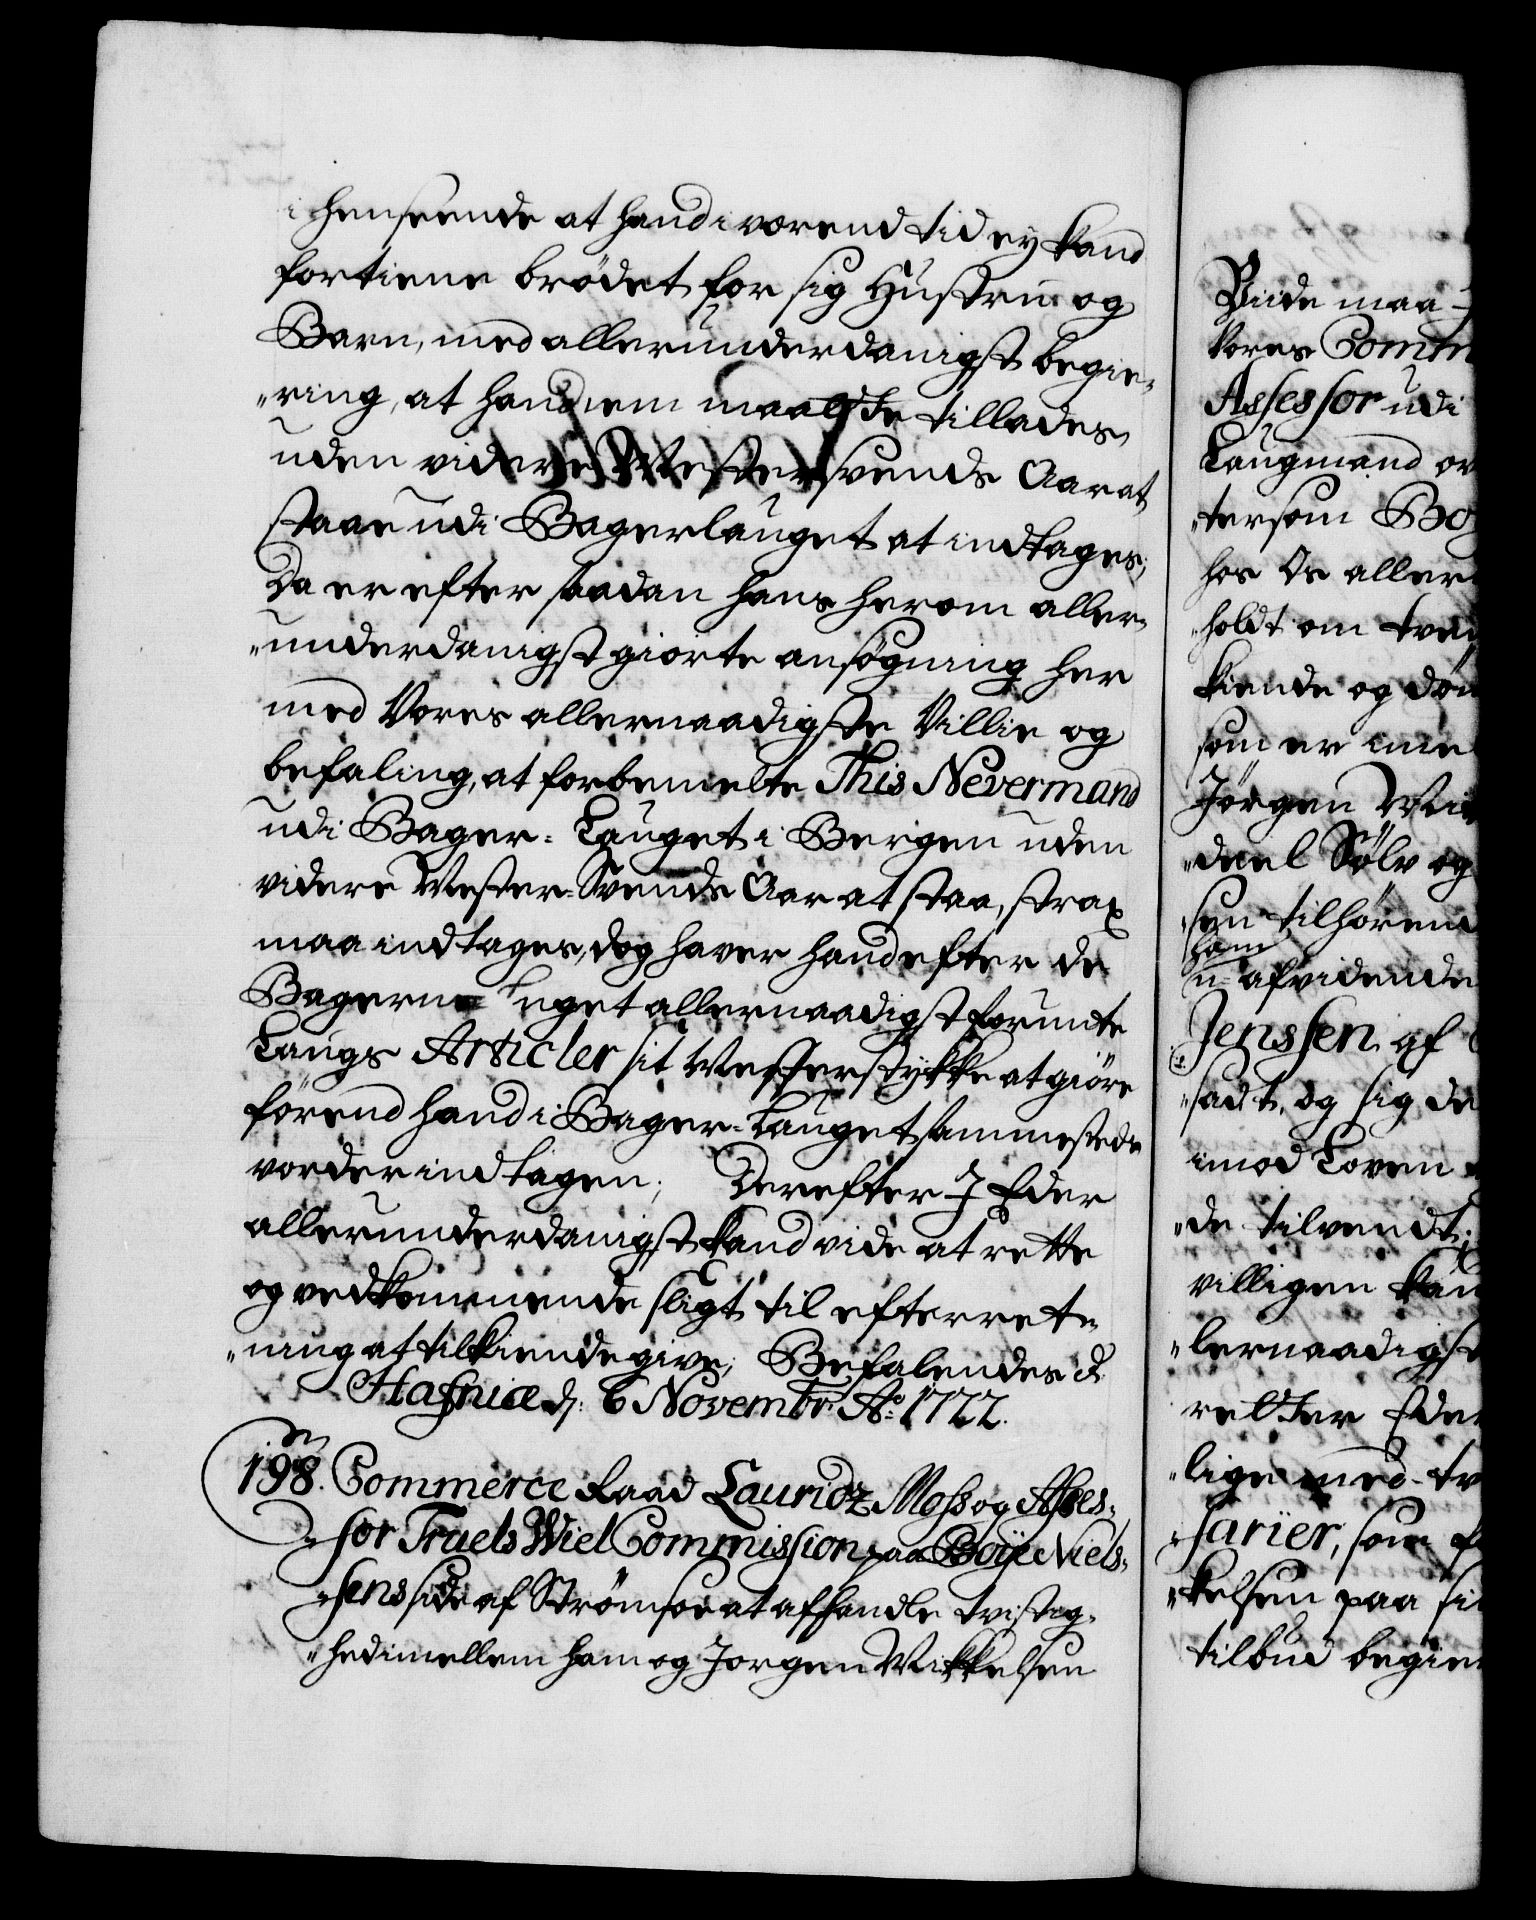 i henseende at hand i vorend tid ey kand
fortiene brödet for sig Hustrue og
Barn, med allerunderdanigst begie-
„ring, at hand nem maatte tillades,
uden videre Mestersvends Aar at
staae udi Bagerlauget at indtages;
Da er efter saadan hans herom aller-
„underdanigst giorte ansögning her
med Vores allernaadigste Villie og
befaling, at forbemelte This Nevermand
udi Bager-Lauget i Bergen uden
videre Mester-Svends Aar at staa, strax
maa indtages, dog haver hand efter de
Bagerne allernaadigst forunte
Laugs Articler sit Mesterstykke at giöre
förend hand i Bager-Lauget sammesteds
vorder indtagen; Derefter I Eder
allerunderdanigst kand vide at rette
og vedkommende sligt til efterret-
„ning at tilkiendegive; Befalendes &
Hafniæ d: 6 Novembr: Ao 1722.
198. Commerce Raad Lauridz Moss og Asses-
„sor Truels Wiel Commission paa Boÿe Niels-
„sens side af Strömsoe at afhandle tvistig-
„hed imellem ham og Jorgen Mikkelsen
Viide maa
Vores Comm
Assessor udi
Laugmand ov
„tersom Bo
hos Os aller
„holdt om tve
kiende og döm
som er ime
Jörgen Mi
„deel Sölv og
„sen tilhörend
ham
u-afvidende
Jenssen af
„sadt, og sig de
imod Loven
„de tilvendt;
villigen kan
„lernaadigst
relter Eder
„lige med tv
„sarier, som
„kelsen paa si
tilbud begier